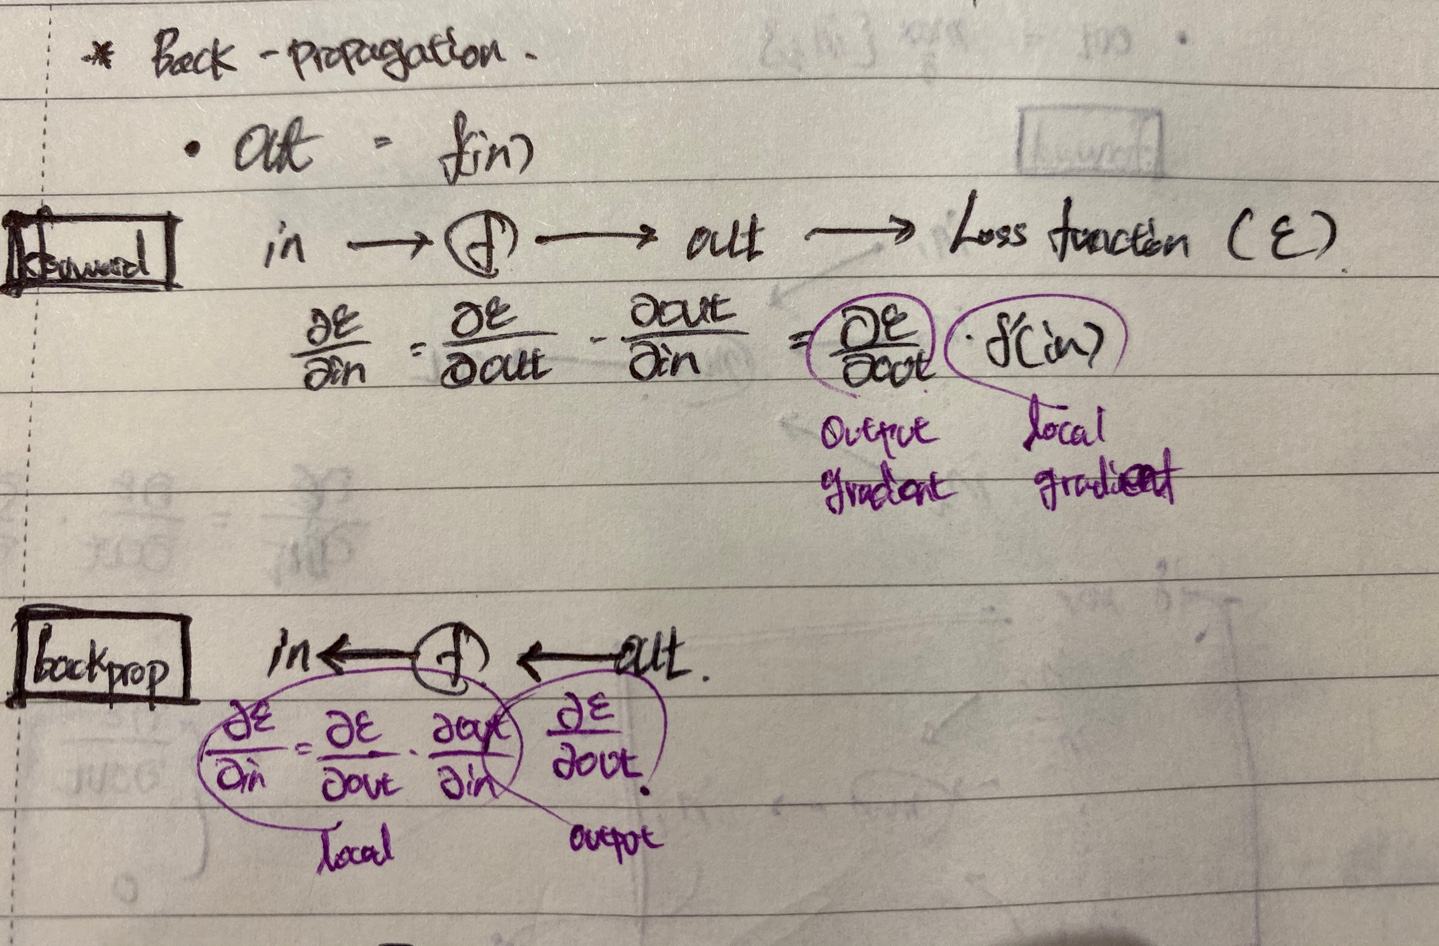 * Back-propagation.
• out = f(in)
forward in → f → out → Loss function (ε).
∂ε/∂in = ∂ε/∂out - ∂out/∂in = ∂ε/∂out · f'(in)
output local
gradient gradient
backprop in ← f ← out.
∂ε/∂in = ∂ε/∂out · ∂out/∂in ∂ε/∂out.
local output